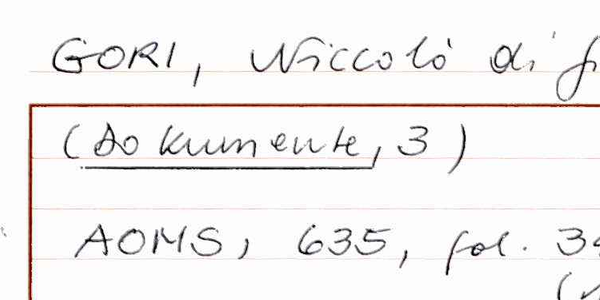 GORI, Niccolò di
(Dokumente, 3)
AOMS, 635, fol.